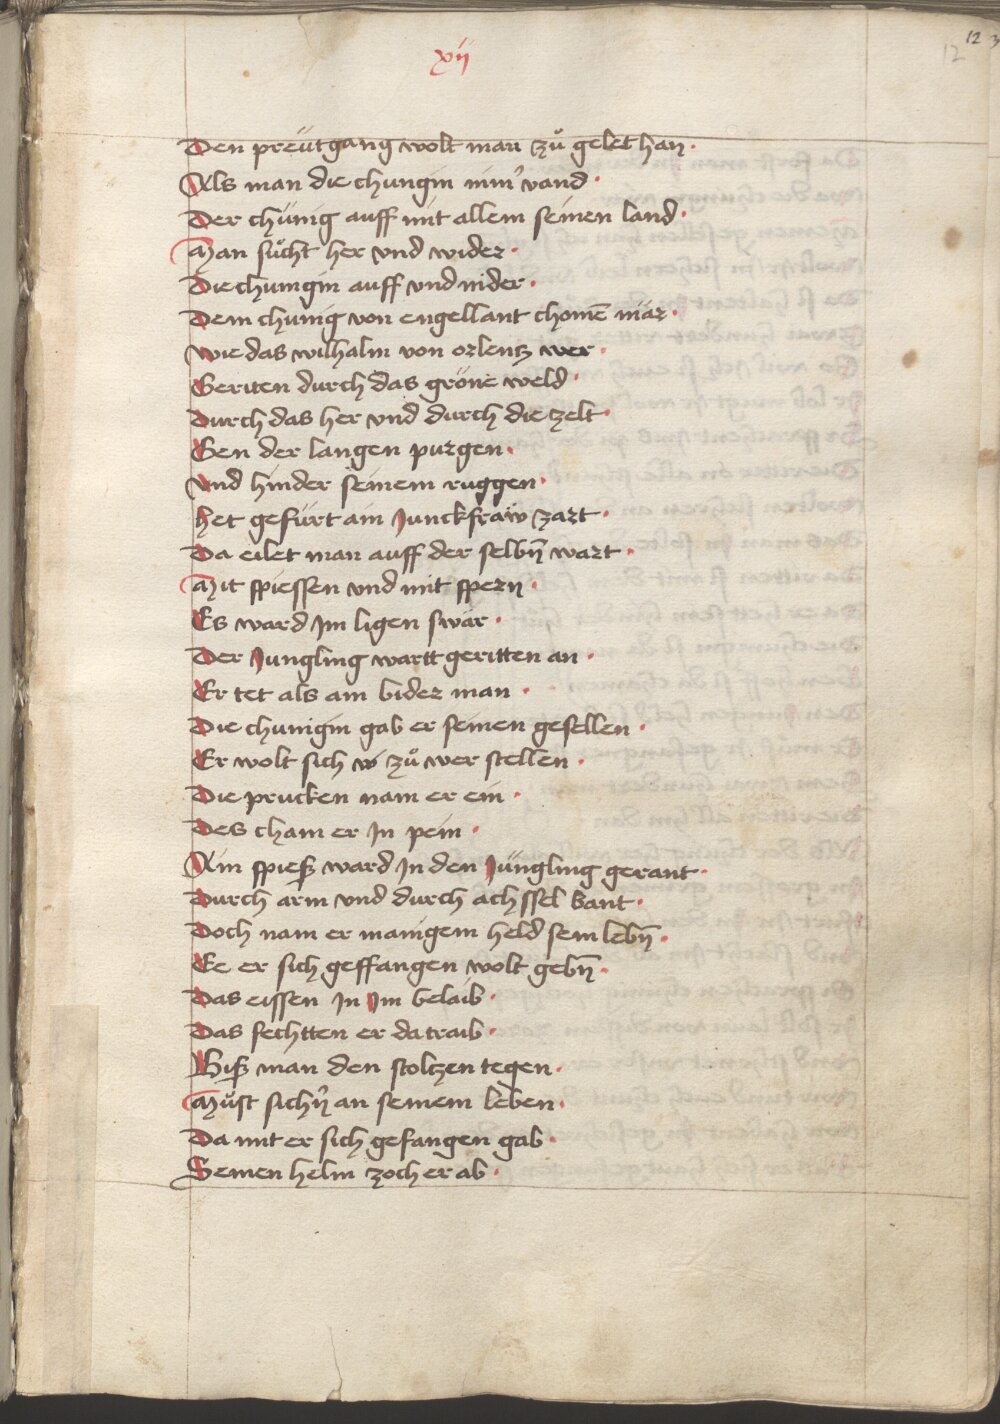 xij
12 3
12
Den preütgang wolt man zů gelet han ·
Als man die chungin nīm̉ vand ·
Der chünig auff mit allem seinen land ·
Man sůcht her vnd wider ·
Die chunigin auff vnd nider ·
Dem chunig von engellant chomē mär ·
Wie das wilhalm von orlentz wer ·
Geriten durch das gröne weld ·
Durch das her vnd durch die zelt ·
Gen der langen purgen ·
Vnd hinder seinem ruggen ·
Het gefürt ain Junckfraw zart ·
Da eilet man auff der selbn̄ wart ·
Mit spiessen vnd mit spern ·
Es ward Jm ligen swär ·
Der Jungling wartt geritten an ·
Er tet als ain bider man ·
Die chunigin gab er seinen gesellen ·
Er wolt sich w zů wer stellen ·
Die prucken nam er ein ·
Des cham er Jn pein ·
Ain spieß ward Jn den Jüngling gerant ·
Durch arm vnd durch achssel bant ·
Doch nam er manigem held sein lebn̄ ·
Ee er sich geffangen wolt gebn̄ ·
Das eissen Jn Jm belaib ·
Das fechtten er da traib ·
Biß man den stoltzen tegen ·
Můst sichn̄ an seinem leben ·
Da mit er sich gefangen gab ·
Seinen helm zoch er ab ·